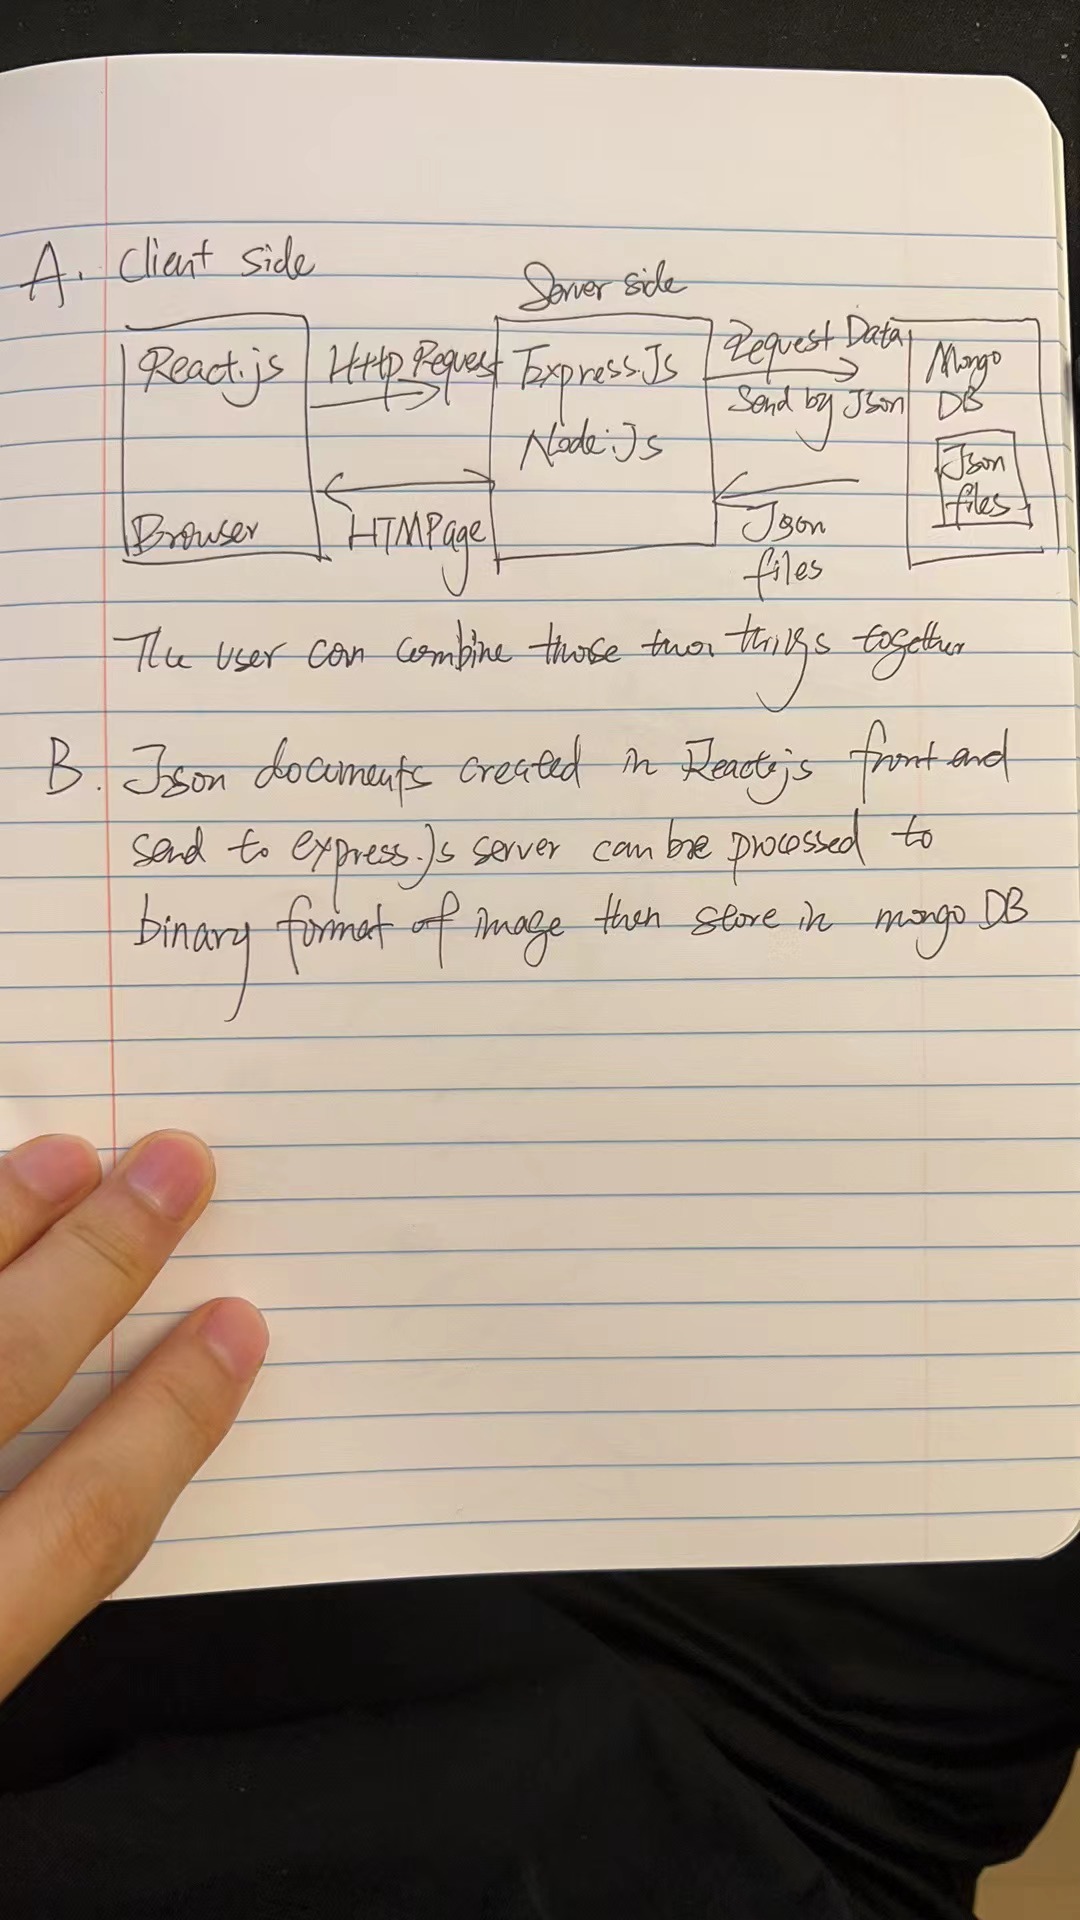 A. Client side
Server side
React.js
Browser
Http Request
HTMPage
Express.Js
Node.Js
Request Data
Send by Json
Json
files
Mongo
DB
Json
files
The user can combine those two things together
B. Json documents created in Reactjs front end
send to express.Js server can be processed to
binary format of image then store in mongo DB